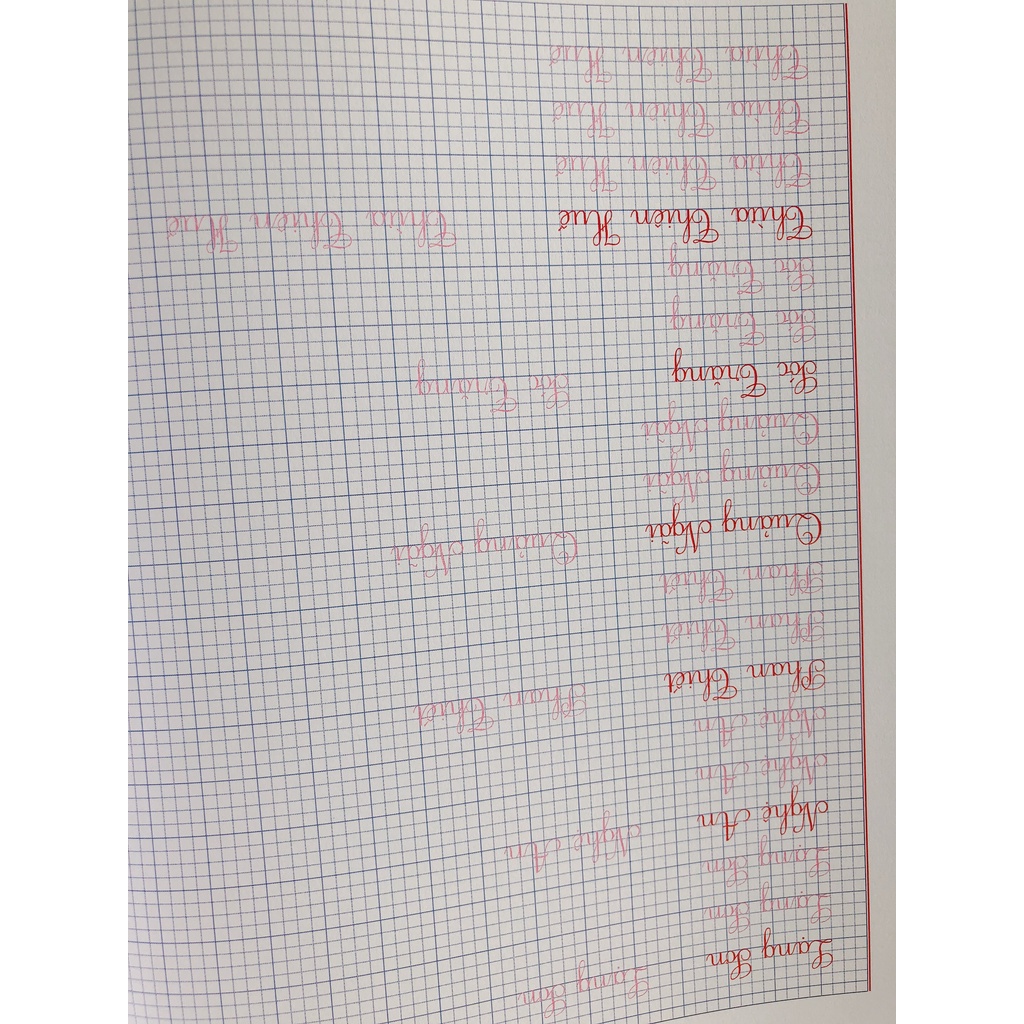 Lạng Sơn Lạng Sơn
Lạng Sơn
Lạng Sơn
Nghệ An Nghệ An
Nghệ An
Nghệ An
Phan Thiết Phan Thiết
Phan Thiết
Phan Thiết
Quảng Ngãi Quảng Ngãi
Quảng Ngãi
Quảng Ngãi
Sóc Trăng Sóc Trăng
Sóc Trăng
Sóc Trăng
Thừa Thiên Huế Thừa Thiên Huế
Thừa Thiên Huế
Thừa Thiên Huế
Thừa Thiên Huế